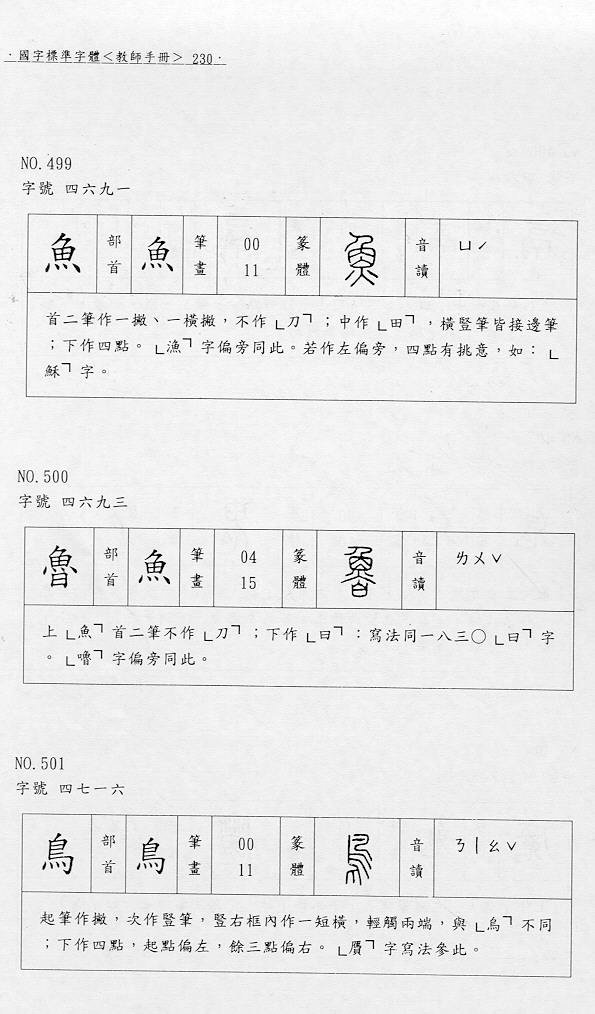 ·國字標準字體<教師手冊> 230·
NO.499
字號 四六九一
魚 部首 魚 筆畫 00 11 篆體 魚 音讀 ㄩˊ
首二筆作一撇、一橫撇，不作「刀」；中作「田」，橫豎筆皆接邊筆
；下作四點。「漁」字偏旁同此。若作左偏旁，四點有挑意，如：「
穌」字。
NO.500
字號 四六九三
魯 部首 魚 筆畫 04 15 篆體 魯 音讀 ㄌㄨˇ
上「魚」首二筆不作「刀」；下作「日」：寫法同一八三〇「日」字
。「嚕」字偏旁同此。
NO.501
字號 四七一六
鳥 部首 鳥 筆畫 00 11 篆體 鳥 音讀 ㄋㄧㄠˇ
起筆作撇，次作豎筆，豎右框內作一短橫，輕觸兩端，與「烏」不同
；下作四點，起點偏左，餘三點偏右。「贗」字寫法參此。